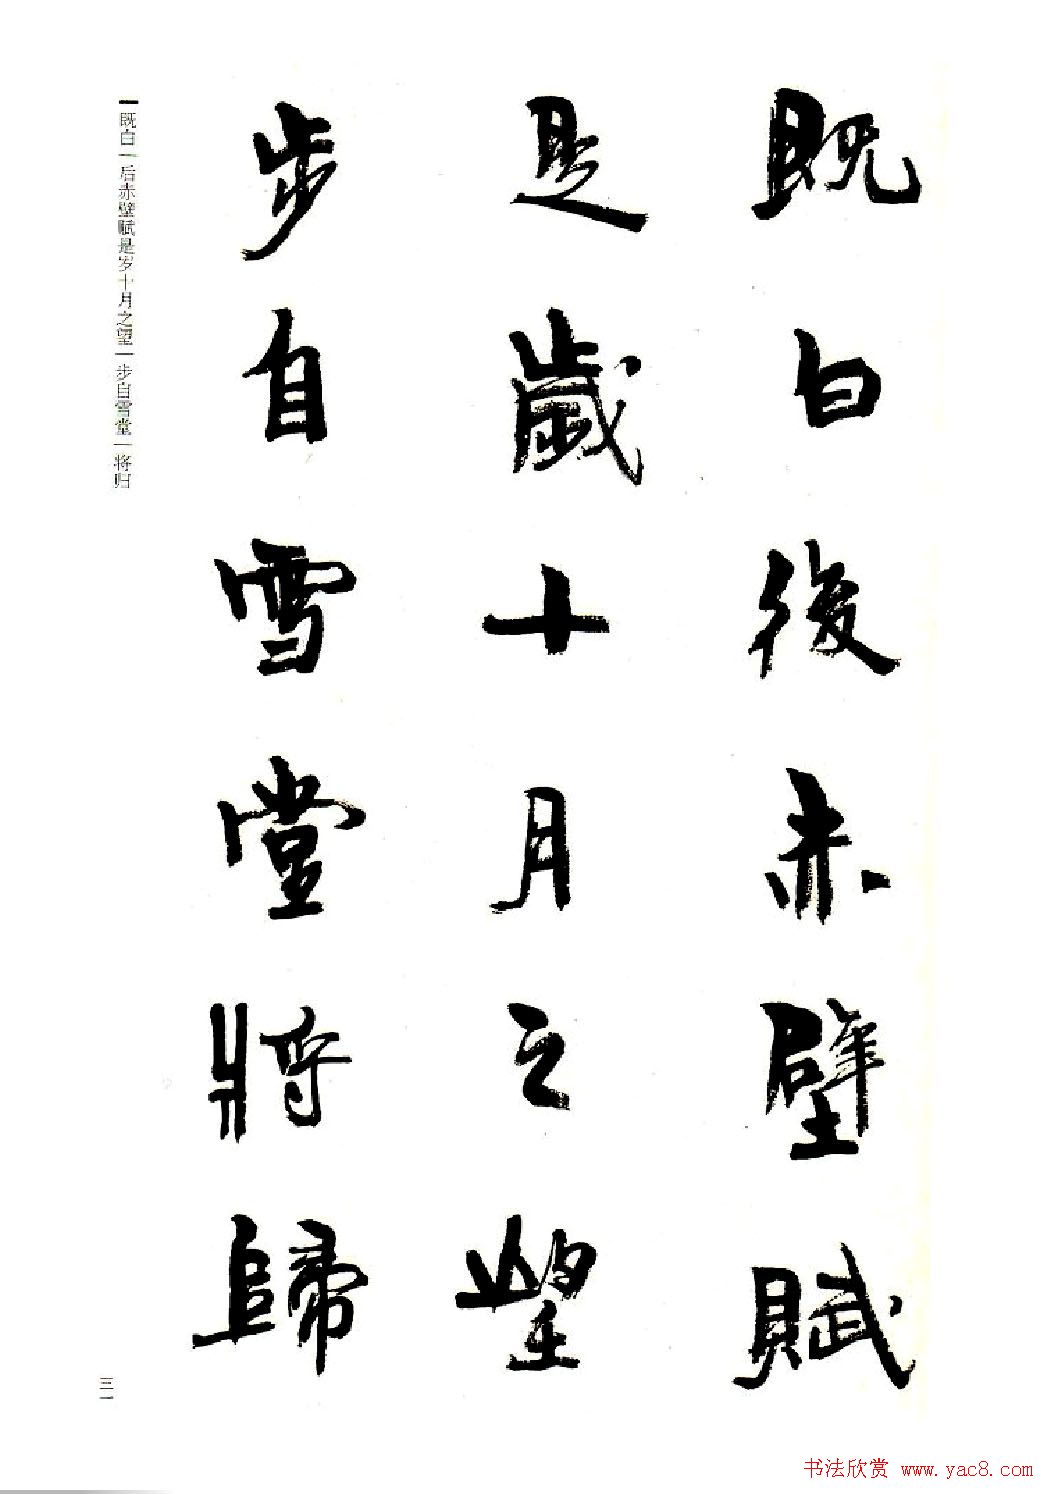 既白後赤壁賦
是歲十月之望
步自雪堂將歸
既白一后赤壁赋是岁十月之望一步自雪堂一将归
三一
书法欣赏 www.yac8.com